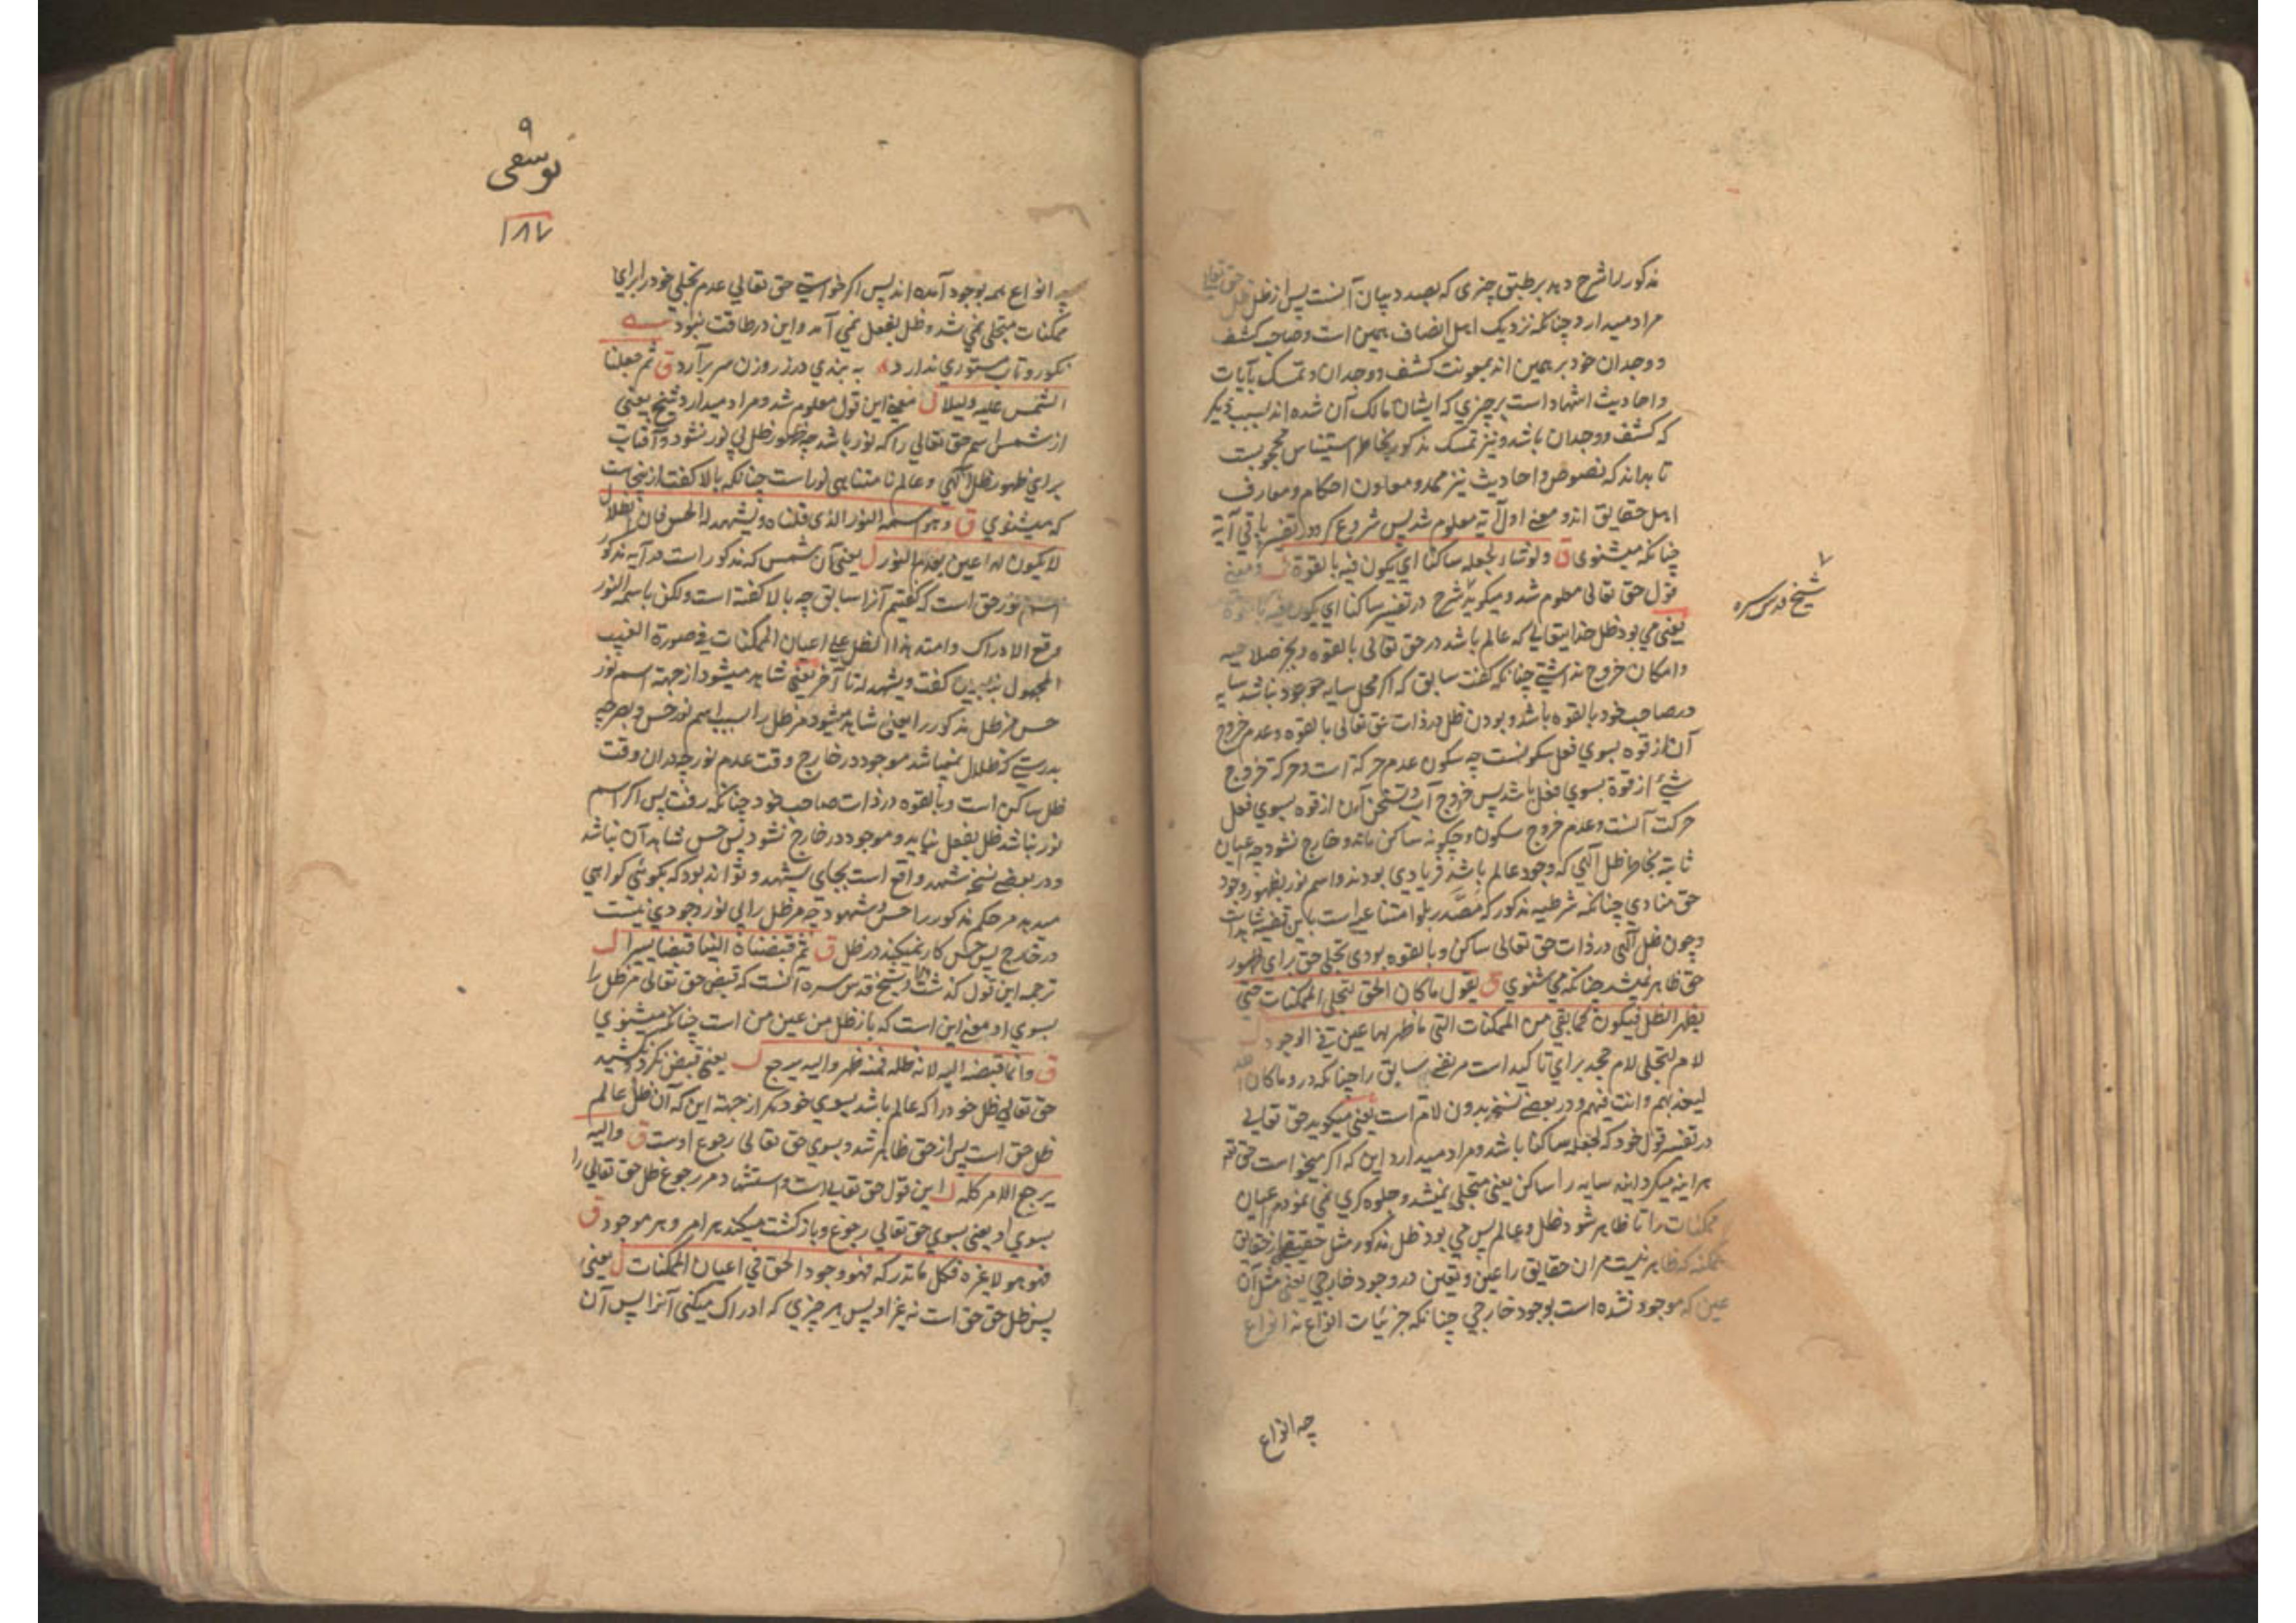 مذکور را شرح دهد بر طبق چیزی که بصدد بیان آنست پس از ظل ظل حق تعالی
مراد میدارد چنانکه نزدیک اهل انصاف همین است و صاحب کشف
و وجدان خود بر همین اند بمعونت کشف و وجدان و تمسک بآیات
و احادیث استشهاد است بر چیزی که ایشان مالک آن شده اند بسبب دیگر
که کشف و وجدان باشد و نیز تمسک مذکور بخاطر استیناس محجوبست
تا بداند که نصوص و احادیث نیز ممد و معاون احکام و معارف
اهل حقایق اند و معنی اول آیه معلوم شد پس شروع کرد در تفسیر باقی آیة
چنانکه میشنوی ق ولو شاء لجعله ساکنا ای یکون فیه بالقوة ل و معنی
قول حق تعالی معلوم شد و میگوید شرح در تفسیر ساکنا ای یکون فیه بالقوة
شیخ قدس سره
یعنی می بود ظل خدایتعالی که عالم باشد در حق تعالی بالقوه و بجز صلاحیه
و امکان خروج نداشتی چنانکه گفت سابق که اگر محل سایه موجود نباشد سایه
در صاحب خود بالقوه باشد و بودن ظل در ذات حق تعالی بالقوه و عدم خروج
آن از قوه بسوی فعل سکونست چه سکون عدم حرکة است و حرکة خروج
شیئ از قوة بسوی فعل باشد پس خروج آب و تسخن آن از قوه بسوی فعل
حرکت آنست و عدم خروج سکون و چگونه ساکن ماند و خارج نشود چه اعیان
ثابته بخاطر ظل الهی که وجود عالم باشد فریادی بودند و اسم نور بظهور وجود
حق منادی چنانکه شرطیه مذکور که مصدر بلو امتناعیه است باین قضیه شاهد است
و چون ظل الهی در ذات حق تعالی ساکن و بالقوه بودی تجلی حق برای ظهور
حق ظاهر نمیشد چنانکه می شنوی ق یقول ما کان الحق لیتجلی للممکنات حتی
یظهر الظل فیکون کما بقی من الممکنات التی ما ظهر لها عین فی الوجود ل
لام لیتجلی لام جحد برای تاکید است مر نفی سابق را چنانکه در و ما کان الله
لیعذبهم و انت فیهم و در بعضی نسخ بدون لام است یعنی میگوید حق تعالی
در تفسیر قول خود که لجعله ساکنا باشد و مراد میدارد این که اگر میخواست حق تعا
هر اینه میکردانید سایه را ساکن یعنی متجلی نمیشد و جلوه کری نمی نمود بر اعیان
ممکنات را تا ظاهر شود ظل و عالم پس می بود ظل مذکور مثل حقیقة از حقایق
ممکنه که ظاهر نیست مر ان حقایق را عین و تعین در وجود خارجی یعنی مثل آن
عین که موجود نشده است بوجود خارجی چنانکه جزئیات انواع نه انواع
چه انواع
۹
یوسفی
۱۸۷
چه انواع همه بوجود آمده اند پس اگر خواستی حق تعالی عدم تجلی خود را برای
ممکنات متجلی نمی شد و ظل بفعل نمی آمد و این در طاقت نبود
نکو رو تاب مستوری ندارد به بندی در ز روزن سر برآرد ق ثم جعلنا
الشمس علیه دلیلا ل معنی این قول معلوم شد و مراد میدارد شیخ یعنی
از شمس اسم حق تعالی را که نور باشد چه ظهور ظل بی نور نشود و آفتاب
برای ظهور ظل الهی و عالم نامتناهی نور است چنانکه بالا گفت ازینجاست
که میشنوی ق و هو اسمه النور الذی قلناه و یشهد له الحس فان الظلال
لا یکون لها عین بعدم النور ل یعنی آن شمس که مذکور است در آیه مذکور
اسم نور حق است که گفتیم آنرا سابق چه بالا گفته است ولکن باسمه النور
وقع الادراک و امتد هذا الظل علی اعیان الممکنات فی صورة الغیب
المجهول گفت و یشهد له تا آخر یعنی شاهد میشود از جهة اسم نور
حس مر ظل مذکور را یعنی شاهد میشود مر ظل را بسبب اسم نور حس و بصر چه
بدرستی که ظلال نمیباشد موجود در خارج وقت عدم نور چه دران وقت
ظل ساکن است و بالقوه در ذات صاحب خود چنانکه رفت پس اگر اسم
نور نباشد ظل بفعل نیاید و موجود در خارج نشود پس حس شاهد آن نباشد
و در بعضی نسخ شهد واقع است بجای یشهد و تواند بود که بگوئی گواهی
میدهد مر حکم مذکور را حس و شهود چه مر ظل را بی نور وجودی نیست
در خارج پس حس کار نمیکند در ظل ق ثم قبضناه الینا قبضا یسیرا ل
ترجمه این قول گذشت و شیخ قدس سره آنست که قبض حق تعالی مر ظل را
بسوی او معنی این است که باز ظل من عین من است چنانکه میشنوی
ق و انما قبضه الیه لانه ظله فمنه ظهر و الیه یرجع ل یعنی قبض نکرد و نکشید
حق تعالی ظل خود را که عالم باشد بسوی خود مگر از جهة این که آن ظل عالم
ظل حق است پس از حق ظاهر شد و بسوی حق تعالی رجوع اوست ق و الیه
یرجع الامر کله ل این قول حق تعالی است و استشهاد مر رجوع ظل حق تعالی را
بسوی او یعنی بسوی حق تعالی رجوع و بازگشت میکند هر امر و هر موجود ق
فهو هو لا غیره فکل ما تدرکه فهو وجود الحق فی اعیان الممکنات ل یعنی
پس ظل حق حق است نه غیر او پس هر چیزی که ادراک میکنی آنرا پس آن